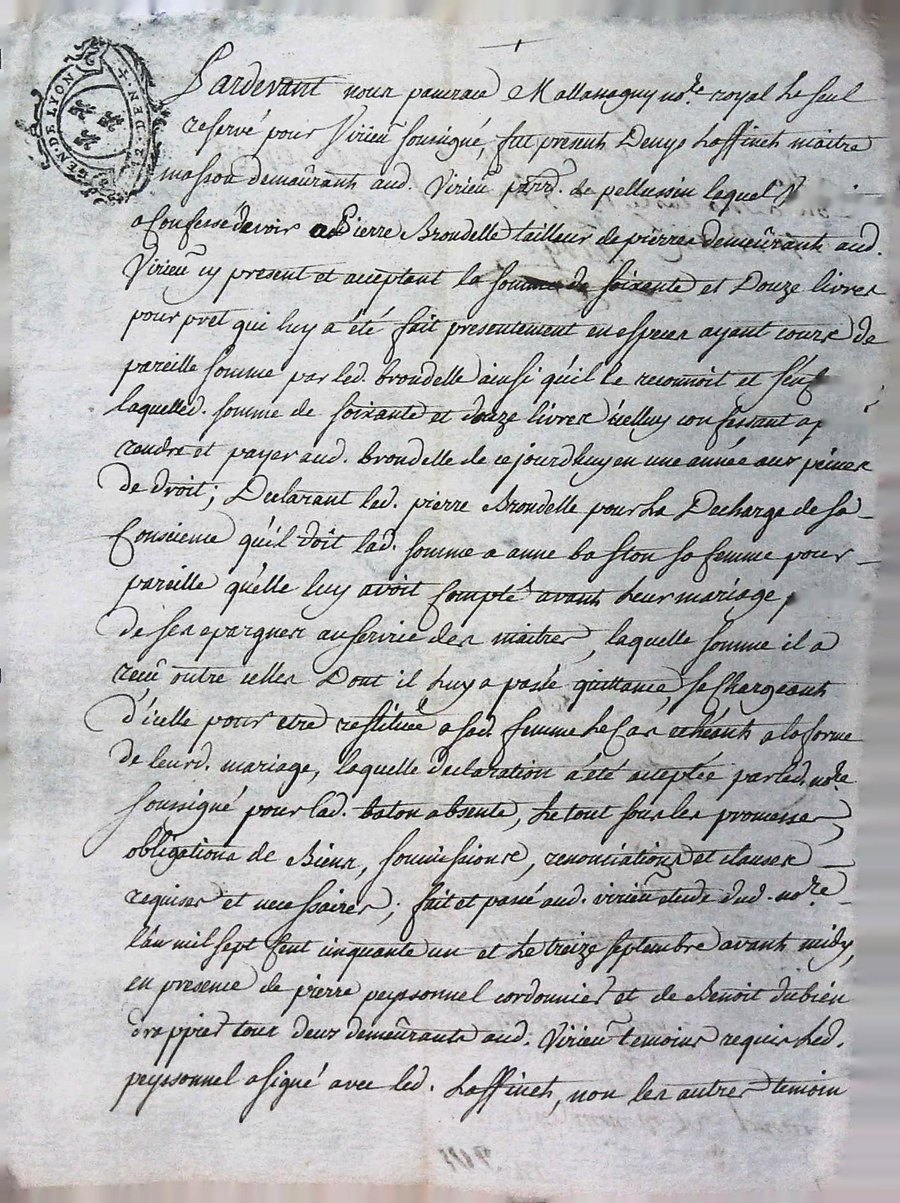 GEN. DE LYON
Pardevant nous pancrace Mallassagny no.re royal Le seul
reservé pour Virieu soussigné, fut present Denys Laffinet maitre
masson demeûrant aud. Virieu parr. de pellussin lequel
a Confessé devoir a Pierre Brondelle tailleur de pierres demeûrant aud.
Virieu cy present et acceptant la somme de soixante et Douze livres
pour pret qui luy a été fait presentement en especes ayant cours de
pareille somme par led. brondelle ainsi qu'il le reconnoit et
laquelled. somme de soixante et douze livres icelluy confessant
rendre et payer aud. brondelle de cejourdhuy en une année aux peines
de droit; Declarant led. pierre Brondelle pour La Decharge de sa
Conscience qu'il doit lad. somme a anne baston sa femme pour
pareille qu'elle luy avoit Compté avant Leur mariage,
de ses epargnes au service des maitres, laquelle somme il a
receu outre celles Dont il Luy a passé quittance, se Chargeant
d'icelle pour etre restituée a sad. femme Le Cas echéant a la forme
de leurd. mariage, laquelle declaration a été acceptée par led. no.re
soussigné pour lad. baton absente, Le tout sous les promesses,
obligations de Biens, soumissions, renonciations et clauses
requises et necessaires; fait et passé aud. virieu etude dud. no.re
l'an mil sept Cent cinquante un et Le treize septembre avant midy,
en presence de pierre peyssonnel cordonnier et de Benoit dubien
drappier tous deux demeûrants aud. Virieu temoins requis Led.
peyssonnel a signé avec led. Laffinet, non les autres temoin